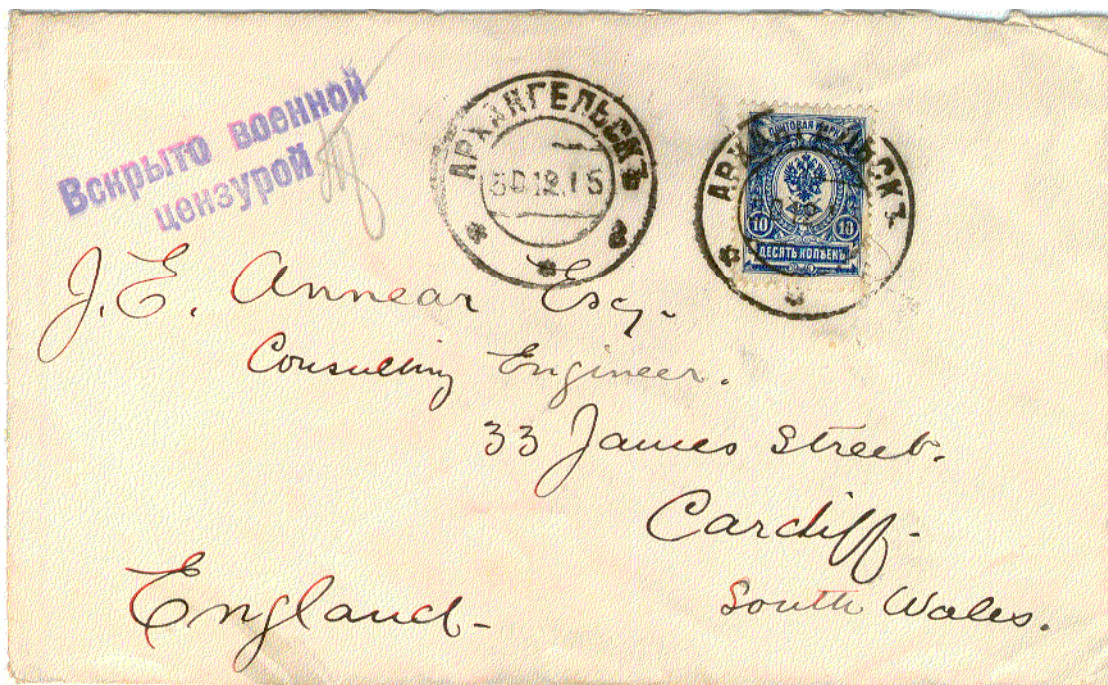 Вскрыто военной
цензурой
АРХАНГЕЛЬСКЪ
12.15
ПОЧТОВАЯ МАРКА
10 10
ДЕСЯТЬ КОПѢЕКЪ
J. E. Annear Esq.
Consulting Engineer.
33 James Street.
Cardiff.
England. South Wales.